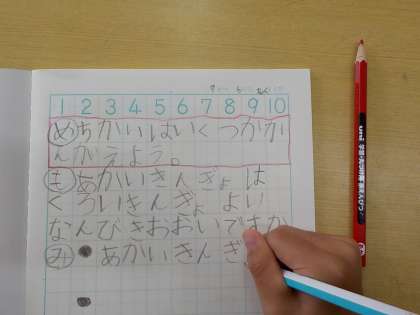 1 2 3 4 5 6 7 8 9 10
め ちがいはいくつかか
んがえよう。
も あかいきんぎょは
くろいきんぎょより
なんびきおおいですか
み ● あかいきんぎ
●
uni